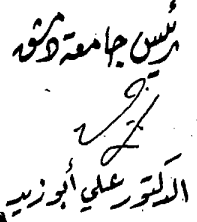 رئيس جامعة دمشق
الدكتور علي أبو زيد